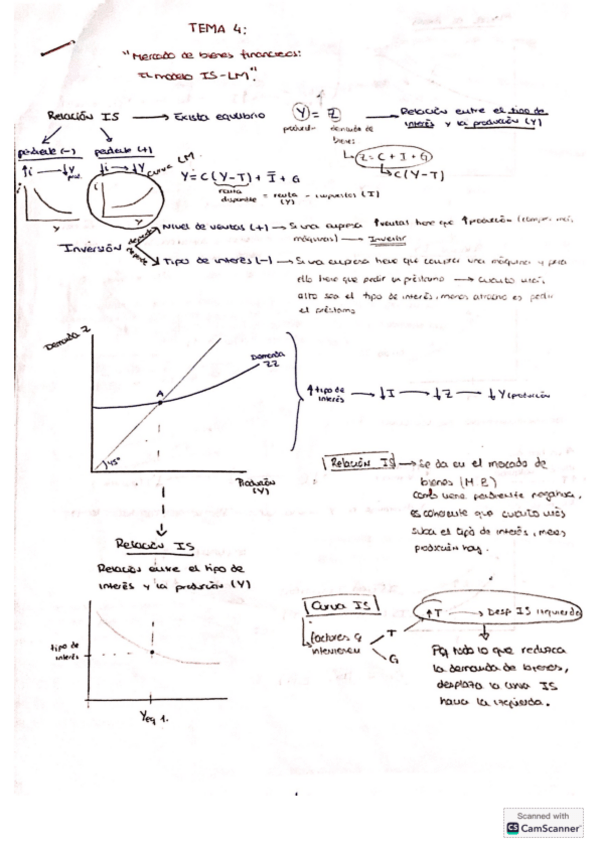 TEMA 4:
"Mercado de bienes financieros:
El modelo IS-LM."
Relación IS → Exista equilibrio Y = Z → Relación entre el tipo de
interés y la producción (Y)
producc- demanda de
bienes
pendiente (-) pendiente (+)
↑i → ↓Y ↓i → ↓Y
curva LM.
Z = C + I + G
C(Y-T)
Y = C(Y-T) + I + G
renta
disponible = renta - impuestos (T)
(Y)
i
Y
i
Y
Inversión
depende
Nivel de ventas (+) → Si una empresa ↑ventas hace que ↑producción (comprar más
máquinas) → Invertir
depende
Tipo de interés (-) → Si una empresa tiene que comprar una máquina y para
ello tiene que pedir un préstamo → cuanto más
alto sea el tipo de interés, menos atractivo es pedir
el préstamo
Demanda Z
Demanda
ZZ
A
45°
Producción
(Y)
↑ tipo de
interés → ↓I → ↓Z → ↓Y (producción
Relación IS → Se da en el mercado de
bienes (M B)
Como tiene pendiente negativa,
es consciente que cuanto más
suba el tipo de interés, menos
producción hay.
Relación IS
Relación entre el tipo de
interés y la producción (Y)
tipo de
interés
Yeq 1.
Curva IS
factores q
intervienen
T
G
↑T → Desp IS izquierda
Pq todo lo que reduzca
la demanda de bienes,
desplaza la curva IS
hacia la izquierda.
Scanned with
CS CamScanner